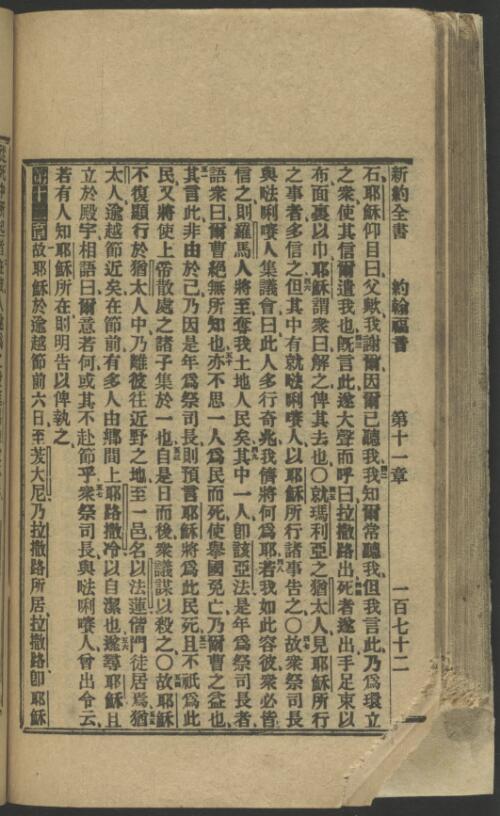 新約全書 約翰福書 第十一章 一百七十二
石耶穌仰目曰父歟我謝爾因爾已聽我我知爾常聽我但我言此乃爲環立
之衆使其信爾遣我也既言此遂大聲而呼曰拉撒路出死者遂出手足束以
布面裹以巾耶穌謂衆曰解之俾其去也〇就瑪利亞之猶太人見耶穌所行
之事者多信之但其中有就𠵽唎㘔人以耶穌所行諸事告之〇故衆祭司長
與𠵽唎㘔人集議會曰此人多行奇兆我儕將何爲耶若我如此容彼衆必皆
信之則羅馬人將至奪我土地人民矣其中一人卽該亞法是年爲祭司長者
語衆曰爾曹絕無所知也亦不思一人爲民而死使舉國免亡乃爾曹之益也
其言此非由於己乃因是年爲祭司長則預言耶穌將爲此民死且不祇爲此
民又將使上帝散處之諸子集於一也自是日而後衆議謀以殺之〇故耶穌
不復顯行於猶太人中乃離彼往近野之地至一邑名以法蓮偕門徒居焉猶
太人逾越節近矣在節前有多人由鄉間上耶路撒冷以自潔也遂尋耶穌且
立於殿宇相語曰爾意若何或其不赴節乎衆祭司長與𠵽唎㘔人曾出令云
若有人知耶穌所在則明告以俾執之
第十二章故耶穌於逾越節前六日至茇大尼乃拉撒路所居拉撒路卽耶穌